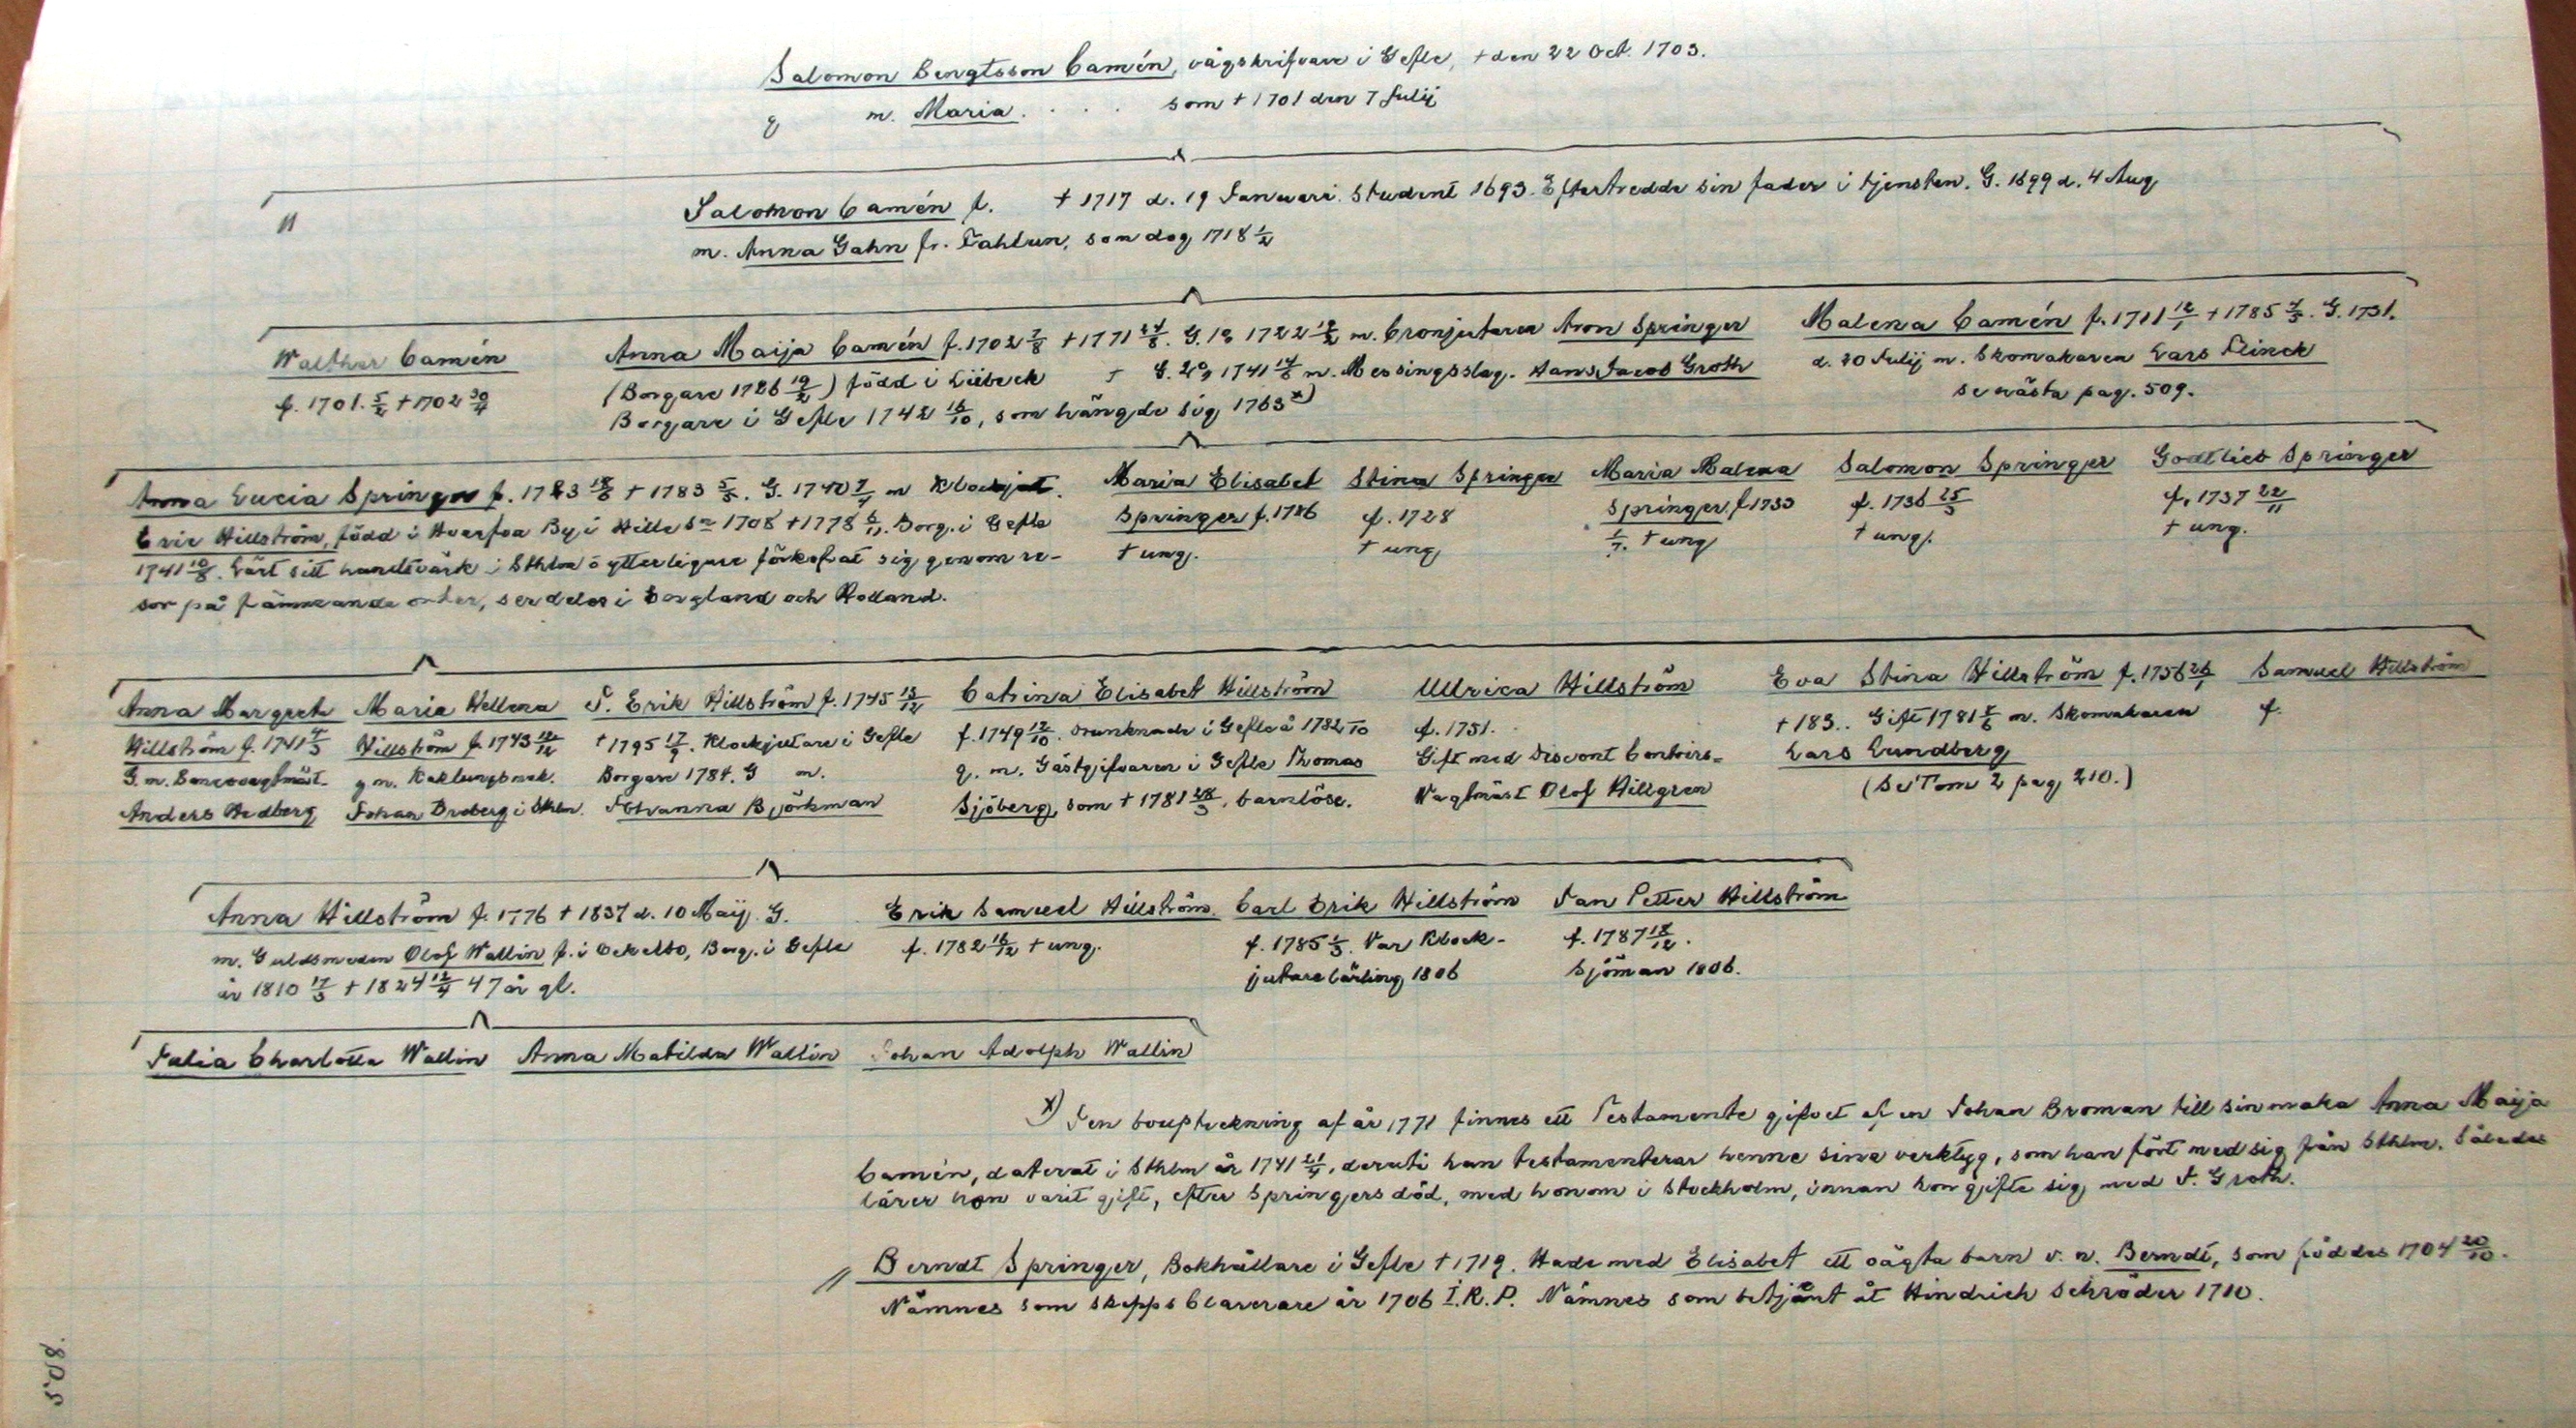 Salomon Bengtsson Camén, vågskrifvare i Gefle, † den 22 Oct. 1703.
g m. Maria. . . . som † 1701 den 7 Julij
Salomon Camén f. † 1717 d. 19 Januari. Student 1693. Efterträdde sin fader i tjensten. G. 1699 d. 4 Aug
m. Anna Gahn fr. Fahlun, som dog 1718 1/2
Walther Camén
f. 1701. 5/2 † 1702 30/4
Anna Maija Camén f. 1702 7/8 † 1771 24/8. G. 1o 1722 12/2 m. Cronjutaren Aron Springer
(Borgare 1726 19/2) född i Lübeck † G. 2o, 1741 14/6 m. Messingsslag. Hans Jacob Groth
Borgare i Gefle 1742 16/10, som hängde sig 1763 x)
Malena Camén f. 1711 12/1 † 1785 4/5. G. 1731.
d. 20 Julij m. Skomakaren Lars Flinck
se nästa pag. 509.
Anna Lucia Springer f. 1723 18/6 † 1783 5/5. G. 1740 7/4 m Klockjut.
Eric Hillström, född i By i Hille Sn 1708 † 1778 6/11. Borg. i Gefle
1741 10/8. Lärt sitt handtvärk i Sthlm o ytterligare förkofrat sig genom re-
sor på främmande orter, serdeles i England och Holland.
Maria Elisabet
Springer f. 1726
† ung.
Stina Springer
f. 1728
† ung
Maria Malena
Springer f 1733
1/7. † ung
Salomon Springer
f. 1736 25/3
† ung.
Gottlieb Springer
f. 1737 22/11
† ung.
Anna Margreta
Hillström f. 1741 4/3
G. m. Bancovagtmäst.
Anders Hedberg
Maria Hellena
Hillström f. 1743 12/12
g m. Kaklungsmak.
Johan Broberg i Sthlm.
J. Erik Hillström f. 1745 13/12
† 1795 17/9. Klockjutare i Gefle
Borgare 1784. G m.
Johanna Björkman
Catrina Elisabet Hillström
f. 1749 12/10. drunknade i Gefle å 1782 /10
g. m. Gästgifvaren i Gefle Thomas
Sjöberg, som † 1781 28/3, barnlöse.
Ullrica Hillström
f. 1751.
Gift med Discont Contoirs-
Vagtmäst Olof Hillgren
Eva Stina Hillström f. 1756 26/1
† 183.. Gift 1781 8/6 m. Skomakaren
Lars Lundberg
(Se Tom 2 pag 210.)
Samuel Hillström
f.
Anna Hillström f. 1776 † 1837 d. 10 Maij. G.
m. Guldsmeden Olof Wallin f. i Ockelbo, Borg. i Gefle
år 1810 17/3 † 1824 12/4 47 år gl.
Erik Samuel Hillström
f. 1782 18/12 † ung.
Carl Erik Hillström
f. 1785 1/3. Var Klock-
jutarelärling 1806
Jan Petter Hillström
f. 1787 18/12.
Sjöman 1806.
Julia Charlotta Wallin Anna Matilda Wallin Johan Adolph Wallin
x) I en bouptekning af år 1771 finnes ett Testamente gifvet af en Johan Broman till sin maka Anna Maija
Camén, daterat i Sthlm år 1741 21/4, deruti han testamenterar henne sina verktyg, som han fört med sig från Sthlm. Således
lärer hon varit gift, efter Springers död, med honom i Stockholm, innan hon gifte sig med J. Groth.
// Berndt Springer, Bokhållare i Gefle † 1719. Hade med Elisabet ett oägta barn v. n. Berndt, som föddes 1704 20/10.
Nämnes som skepps Clarerare år 1706 I. R. P. Nämnes som betjänt åt Hindrich Schröder 1710.
508.